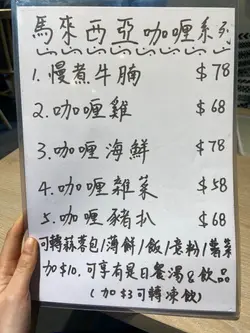 馬來西亞咖喱系列
1.慢煮牛腩 $78
2.咖喱雞 $68
3.咖喱海鮮 $78
4.咖喱雜菜 $58
5.咖喱豬扒 $68
可轉蒜蓉包/薄餅/飯/意粉/薯菜
加$10.可享有是日餐湯&飲品
(加$3可轉凍飲)